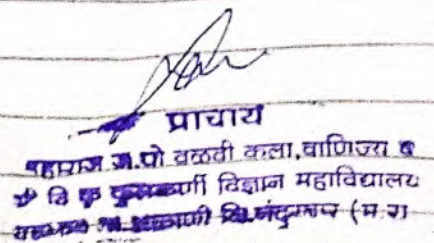 प्राचार्य
महाराज ज.पो वळवी कला, वाणिज्य व
श्री वि कृ कुलकर्णी विज्ञान महाविद्यालय
जि.नंदुरबार (म.रा